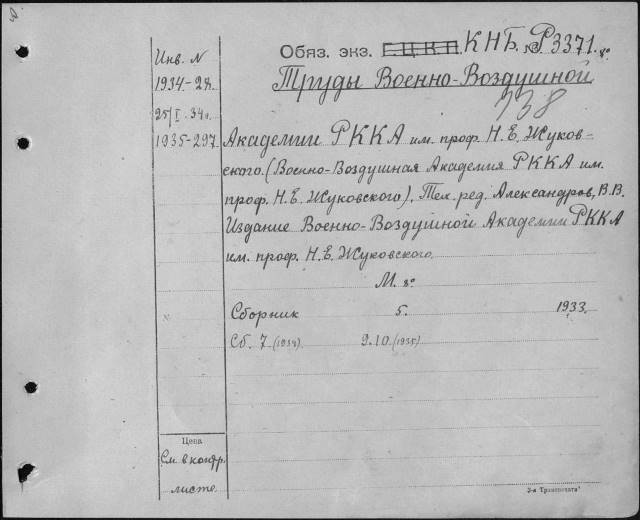 Обяз. экз. Г.Ц.К.П. КНБ. № Р3371. 8°
Инв. N
1934-28.
25/I 34г.
1935-297.
Труды Военно-Воздушной
738
Академии РККА им. проф. Н. Е. Жуков-
ского. (Военно-Воздушная Академия РККА им.
проф. Н. Е. Жуковского). Тех. ред. Александров, В. В.
Издание Военно-Воздушной Академии РККА
им. проф. Н. Е. Жуковского.
М. 8°
Сборник 5. 1933.
Сб. 7 (1934) 9. 10 (1935)
Цена
См. в контр.
листе.
3-я Транспечать"